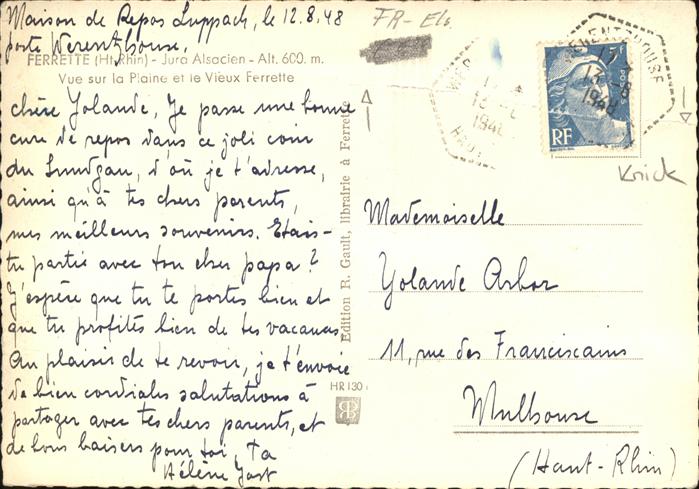 Maison de Repos Luppach, le 12.8.48
poste Werentzhouse.
FERRETTE (Ht-Rhin) - Jura Alsacien - Alt. 600. m.
Vue sur la Plaine et le Vieux Ferrette
chère Yolande, Je passe une bonne
cure de repos dans ce joli coin
du Sundgau, d'où je t'adresse,
ainsi qu'à tes chers parents,
mes meilleurs souvenirs. Etais-
tu partie avec ton cher papa?
J'espère que tu te portes bien et
que tu profites bien de tes vacances
Au plaisir de te revoir, je t'envoie
de bien cordiales salutations à
partager avec tes chers parents, et
de bons baisers pour toi, Ta
Hélène Jost
Edition R. Gault, librairie à Ferrette
HR 130
FR-Els.
13-8
1948
RF
5F
POSTES
WERENTZHOUSE
13-8
1948
Knick
Mademoiselle
Yolande Arbor
11, rue des Franciscains
Mulhouse
(Haut-Rhin)